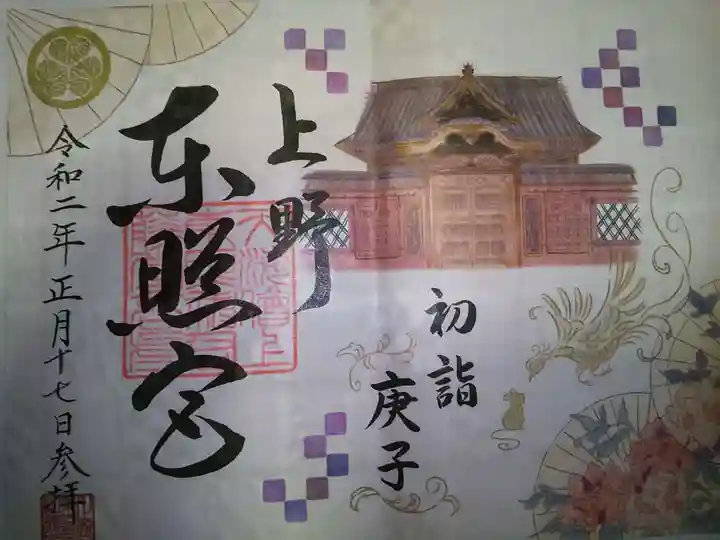 初詣
庚子
上野
东照宮
令和二年正月十七日参拝